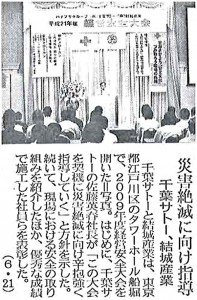 平成21年度
経営安全大会
災害絶滅に向け指導
千葉サトー、結城産業
千葉サトーと結城産業は、東京
都江戸川区のタワーホール船堀
で、2009年度経営安全大会を
開いた=写真。はじめに、千葉サ
トーの佐藤英春社長が「この大会
を契機に災害絶滅に向け辛抱強く
指導していく」と方針を示した。
続いて、現場における安全の取り
組みを紹介したほか、優秀な成績
で施工した社員らを表彰した。
(6・21)